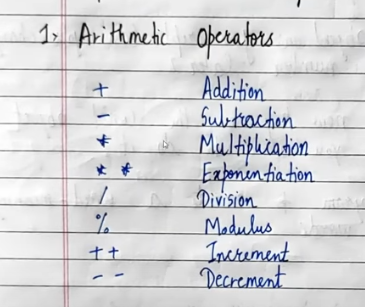 1, Arithmetic Operators
+ Addition
- Subtraction
* Multiplication
* * Exponentiation
/ Division
% Modulus
++ Increment
-- Decrement